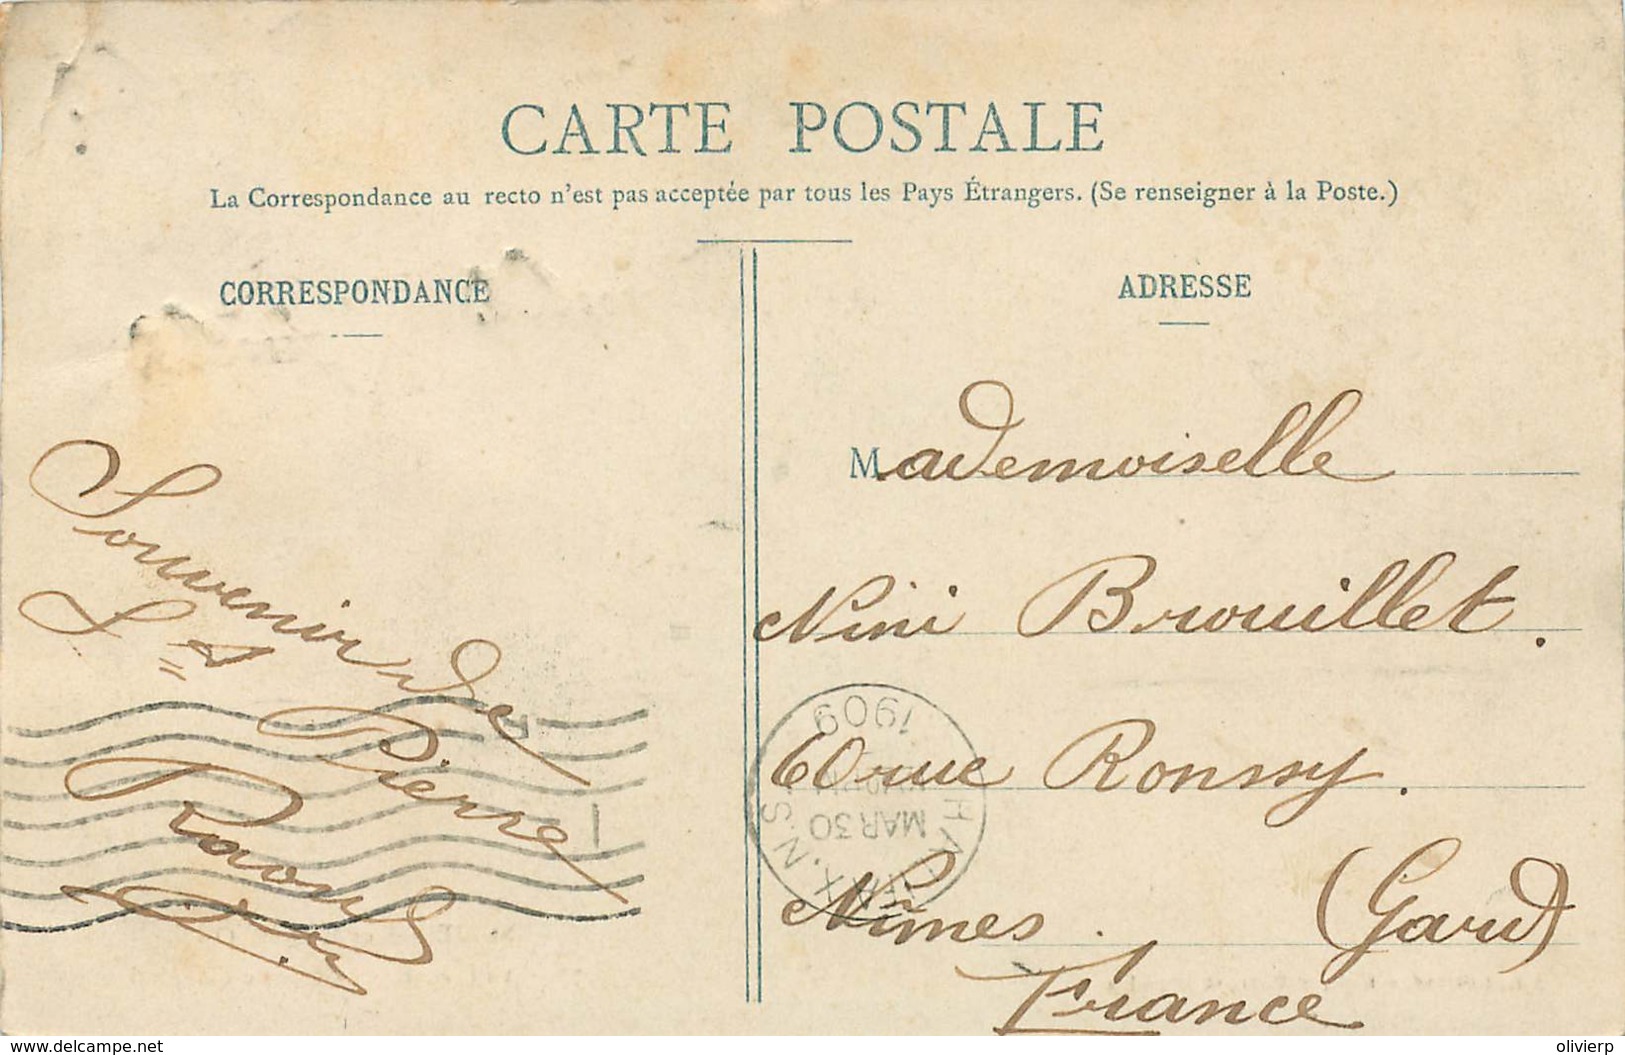 CARTE POSTALE
La Correspondance au recto n'est pas acceptée par tous les Pays Étrangers. (Se renseigner à la Poste.)
CORRESPONDANCE
Souvenir de
St Pierre
Raoul
ADRESSE
Mademoiselle
Nini Brouillet.
60 rue Roussy.
Nîmes. (Gard)
France
HALIFAX. N.S.
MAR 30
1909
www.delcampe.net
olivierp